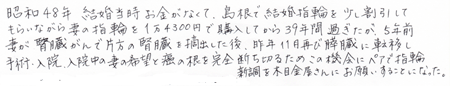 昭和48年 結婚当時お金がなくて、島根で結婚指輪を少し割引して
もらいながら妻の指輪を1万4300円で購入してから39年間過ぎたが、5年前
妻が腎臓がんで片方の腎臓を摘出した後、昨年11月再び膵臓に転移し
手術・入院、入院中の妻の希望と癌の根を完全断ち切るためこの機会にペアで指輪
新調を木目金屋さんにお願いすることになった。